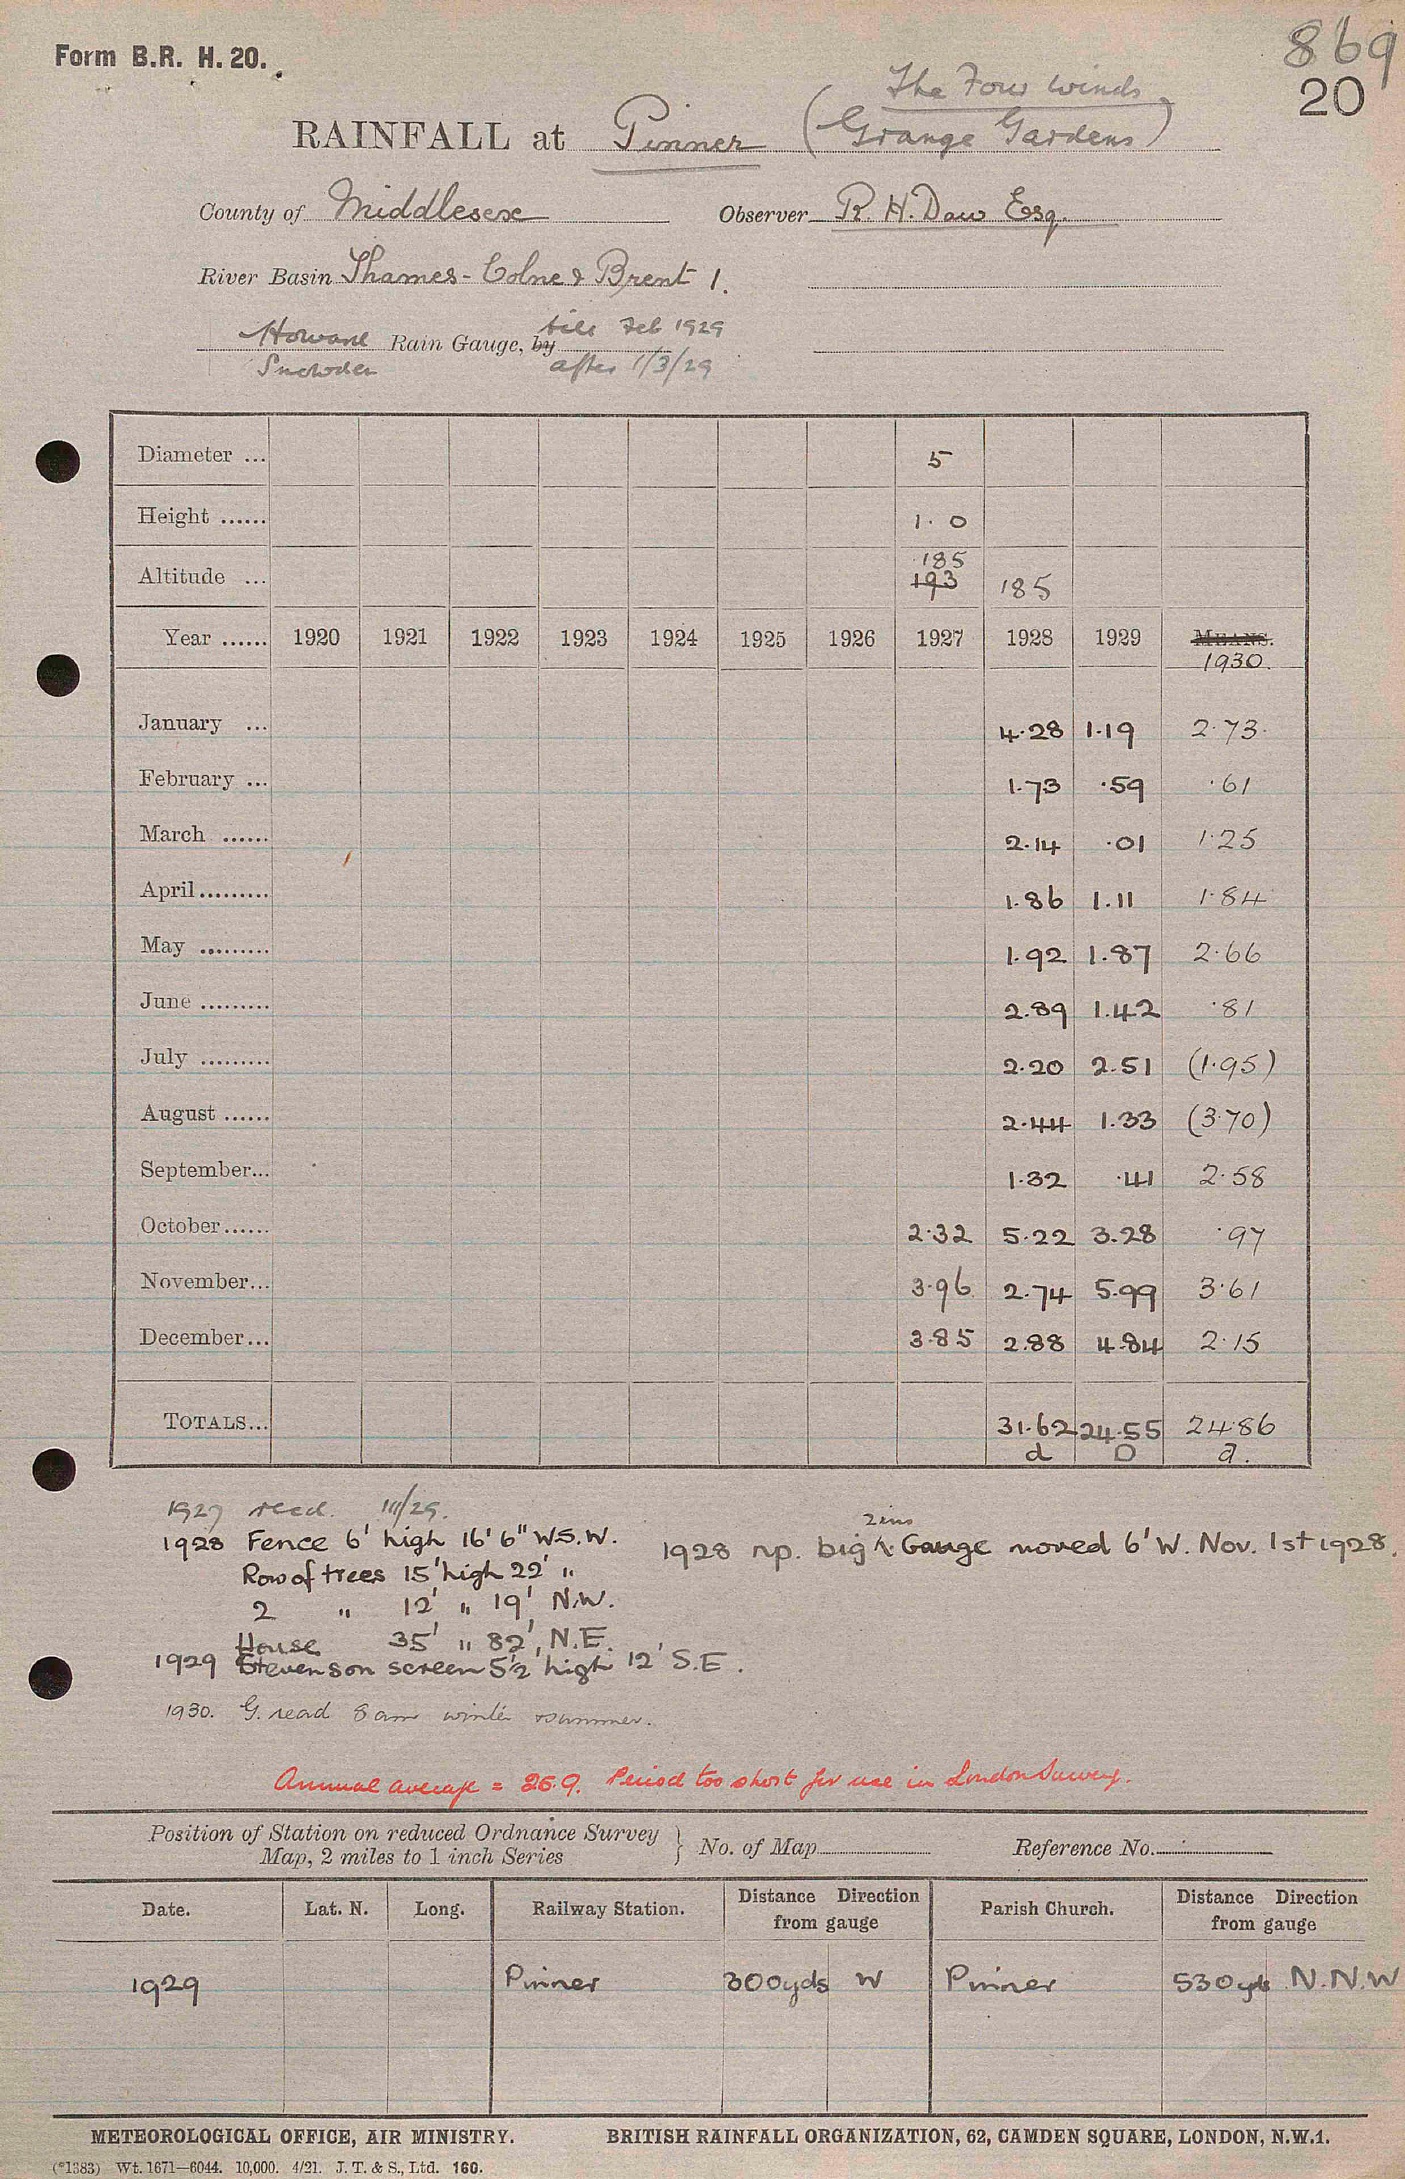 Form B.R. H. 20.
869
20
The Four Winds
RAINFALL at Pinner (Grange Gardens)
County of Middlesex Observer R. H. Daw Esq.
River Basin Thames - Colne & Brent 1.
Howard Rain Gauge, by till Feb 1929
Snowdon after 1/3/29
Diameter ... 5
Height ...... 1.0
185
Altitude ... 193 185
Year ...... 1920 1921 1922 1923 1924 1925 1926 1927 1928 1929 MEANS.
1930.
January ... 4.28 1.19 2.73
February ... 1.73 .59 .61
March ...... 2.14 .01 1.25
April ......... 1.86 1.11 1.84
May ......... 1.92 1.87 2.66
June ......... 2.89 1.42 .81
July ......... 2.20 2.51 (1.95)
August ...... 2.44 1.33 (3.70)
September... 1.32 .41 2.58
October...... 2.32 5.22 3.28 .97
November... 3.96 2.74 5.99 3.61
December... 3.85 2.88 4.84 2.15
TOTALS... 31.62 24.55 24.86
d D a.
1927 recd. /29.
1928 Fence 6' high 16'6" W.S.W.
Row of trees 15' high 22' "
2 " 12' " 19' N.W.
House 35' " 82', N.E.
2 ins
1928 np. big Gauge moved 6' W. Nov. 1st 1928.
1929 Stevenson screen 5½' high 12' S.E.
1930. G. read 8 am winter & summer.
Annual average = 26.9. Period too short for use in London Survey.
Position of Station on reduced Ordnance Survey
Map, 2 miles to 1 inch Series } No. of Map Reference No.
Date. Lat. N. Long. Railway Station. Distance Direction from gauge Parish Church. Distance Direction from gauge
1929 Pinner 300yds W Pinner 530yds N.N.W
METEOROLOGICAL OFFICE, AIR MINISTRY. BRITISH RAINFALL ORGANIZATION, 62, CAMDEN SQUARE, LONDON, N.W.1.
(*1383) Wt. 1671—6044. 10,000. 4/21. J. T. & S., Ltd. 160.